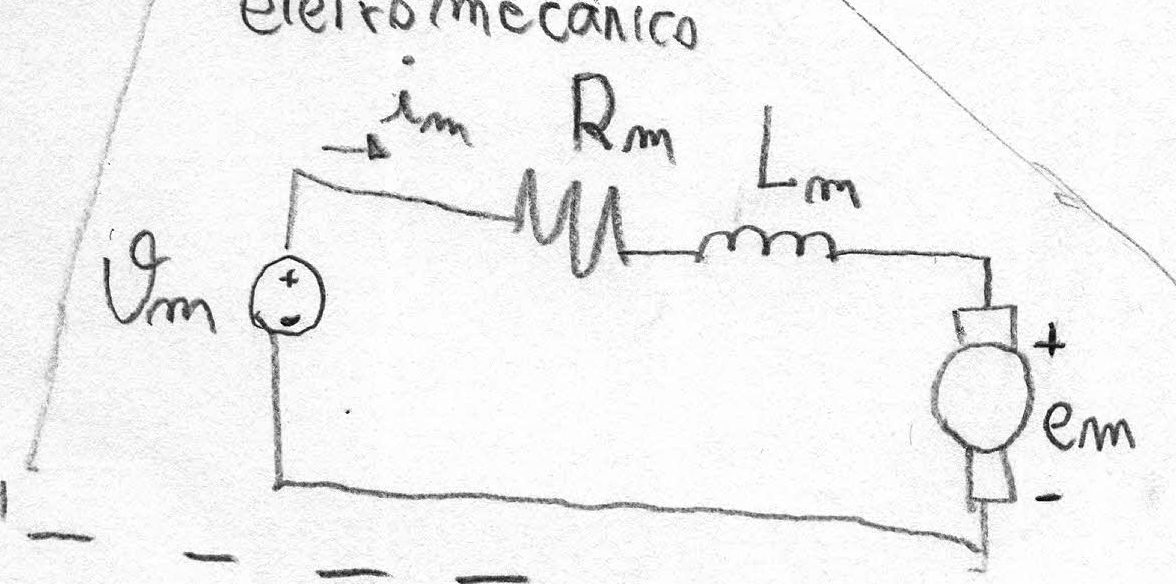 eletromecânico
im
Rm
Lm
+
-
vm
+
em
-